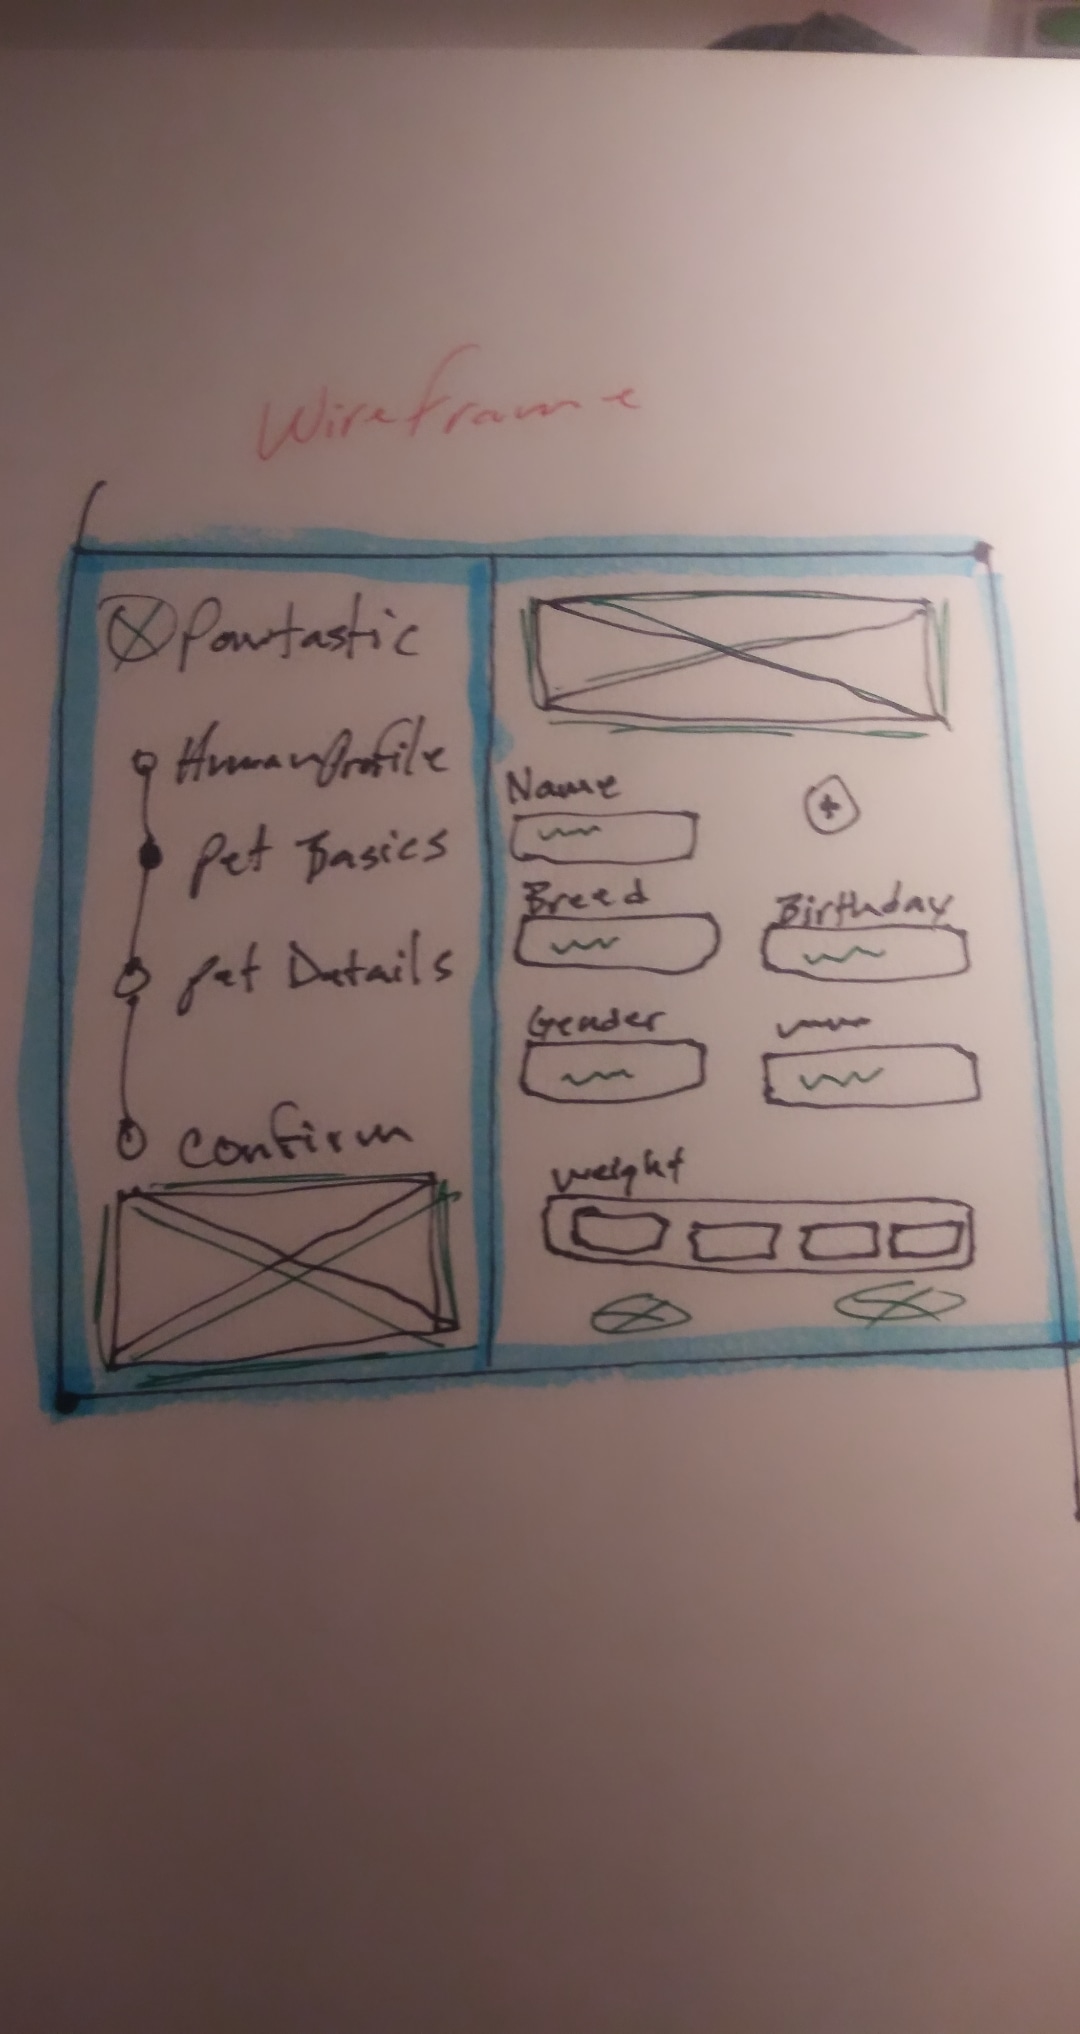 Wireframe
Pawtastic
Human Profile
Pet Basics
Pet Details
Confirm
Name
Breed
Birthday
Gender
weight